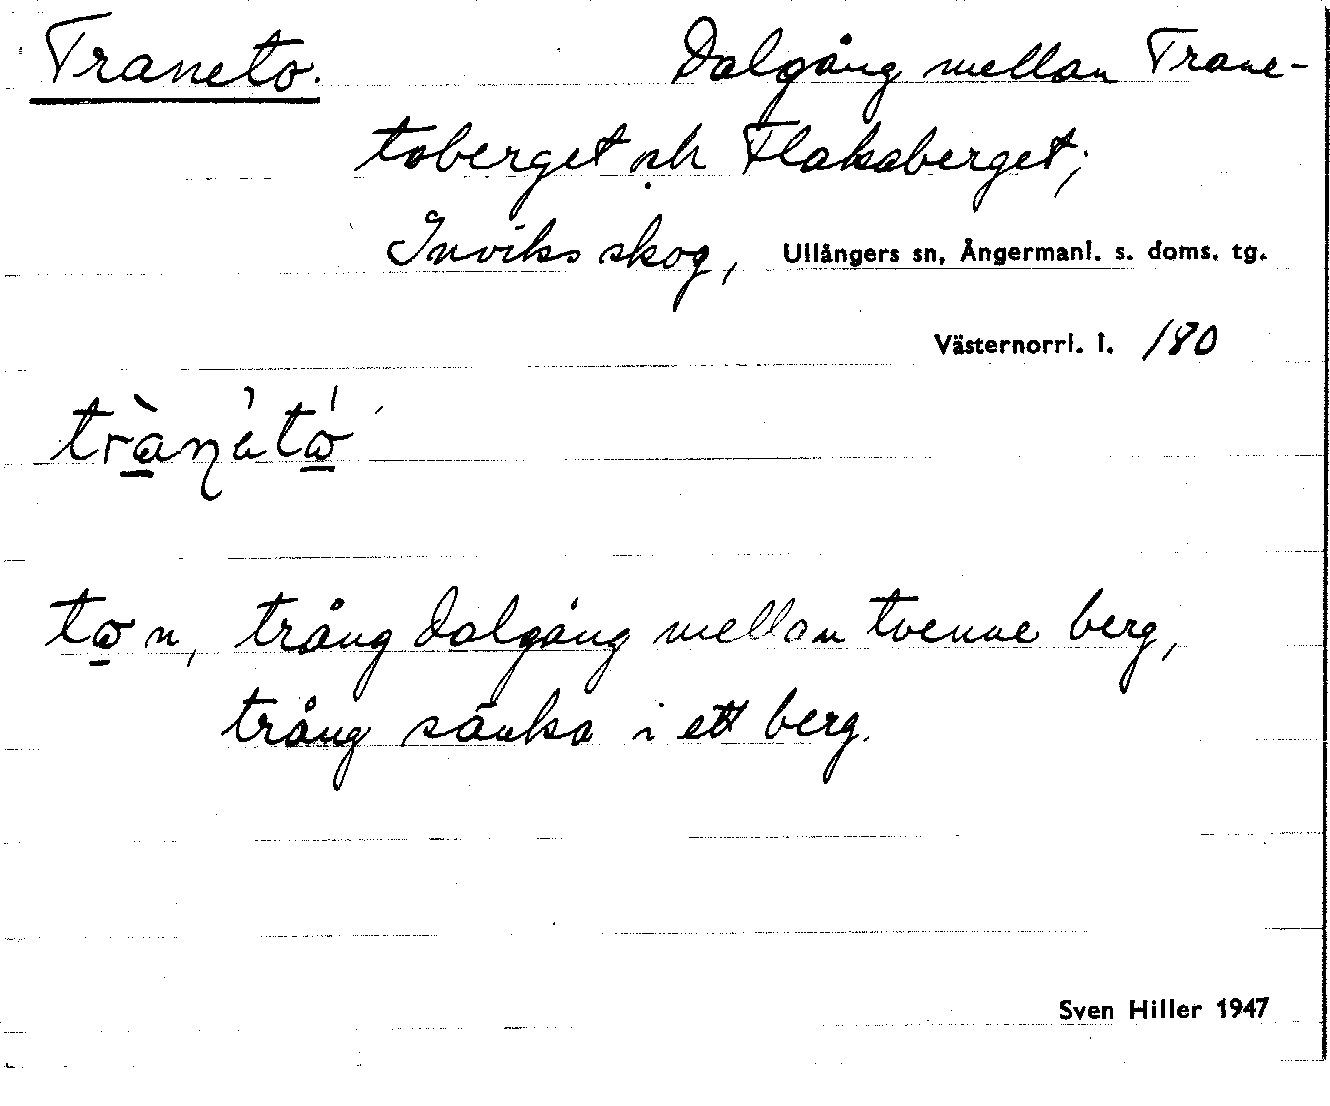 Traneto. Dalgång mellan Trane-
toberget och Flakaberget;
Inviks skog, Ullångers sn, Ångermanl. s. doms. tg.
Västernorrl. l. 180
to n, trång dalgång mellan tvenne berg,
trång sänka i ett berg.
Sven Hiller 1947